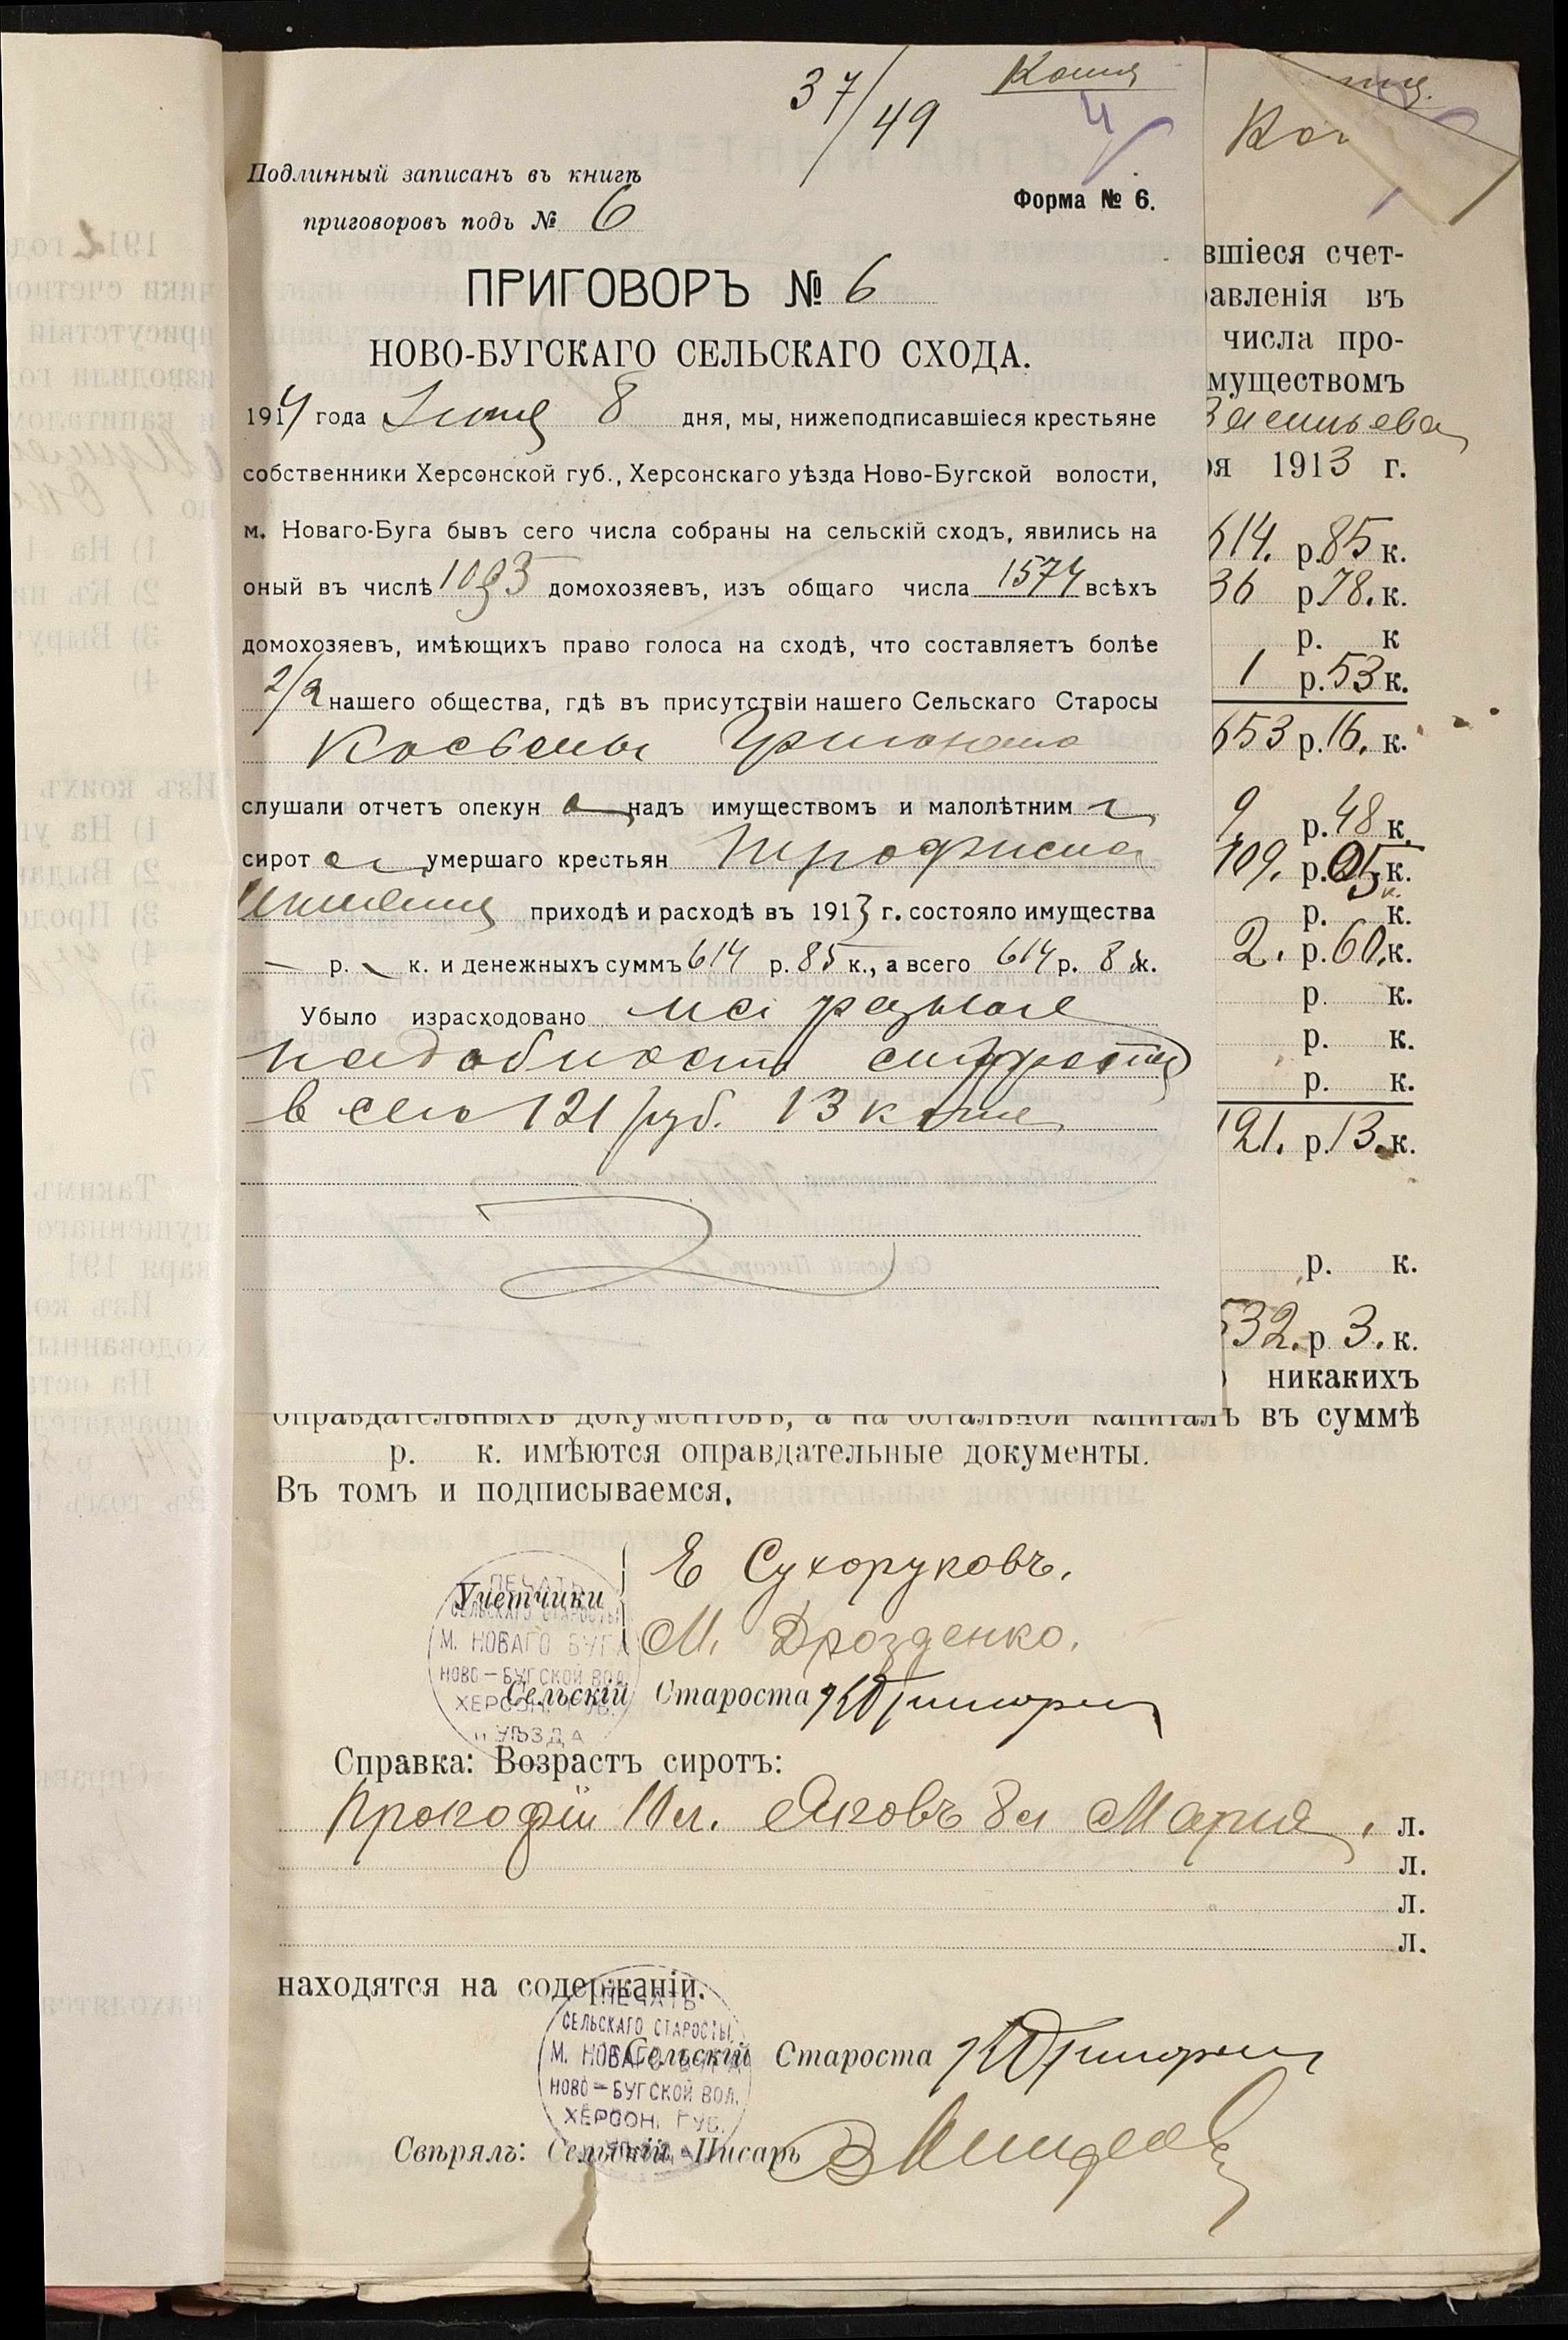 37/49 Копия
4
Подлинный записанъ въ книгѣ
приговоровъ подъ № 6
Форма № 6.
ПРИГОВОРЪ № 6
НОВО-БУГСКАГО СЕЛЬСКАГО СХОДА.
1914 года Июня 8 дня, мы, нижеподписавшіеся крестьяне
собственники Херсонской губ., Херсонскаго уѣзда Ново-Бугской волости,
м. Новаго-Буга бывъ сего числа собраны на сельскій сходъ, явились на
оный въ числѣ 1093 домохозяевъ, изъ общаго числа 1574 всѣхъ
домохозяевъ, имѣющихъ право голоса на сходѣ, что составляетъ болѣе
2/3 нашего общества, гдѣ въ присутствіи нашего Сельскаго Старосы
слушали отчетъ опекун а надъ имуществомъ и малолѣтним
сирот умершаго крестьян
приходѣ и расходѣ въ 1913 г. состояло имущества
— р. к. и денежныхъ суммъ 614 р. 85 к., а всего 614 р. 85 к.
Убыло израсходовано на разные
надобности сиротъ
всего 121 руб. 13 коп
Коп
вшіеся счет-
авленія въ
числа про-
муществомъ
Васильева
ря 1913 г.
614. р. 85 к.
36 р. 78. к.
р. к
1 р. 53 к.
653 р. 16. к.
9. р. 48 к.
109. р. 05 к.
р. к.
2. р. 60. к.
р. к.
р. к.
р. к.
121. р. 13. к.
р. к.
532. р 3. к.
никакихъ
оправдательныхъ документовъ, а на остальной капиталъ въ суммѣ
р. к. имѣются оправдательные документы.
Въ томъ и подписываемся,
Учетчики Е Сухоруковъ.
М. Дрозденко.
Сельскій Староста
ПЕЧАТЬ
СЕЛЬСКАГО СТАРОСТЫ
М. НОВАГО БУГА
НОВО-БУГСКОЙ ВОЛ.
ХЕРСОН. ГУБ.
" УѢЗДА
Справка: Возрастъ сиротъ:
Прокофій 11 л. Яковъ 8 л Мария. л.
л.
л.
л.
находятся на содержаніи.
ПЕЧАТЬ
СЕЛЬСКАГО СТАРОСТЫ
М. НОВАГО БУГА
НОВО-БУГСКОЙ ВОЛ.
ХЕРСОН. ГУБ.
Сельскій Староста
Свѣрялъ: Сельскій Писарь